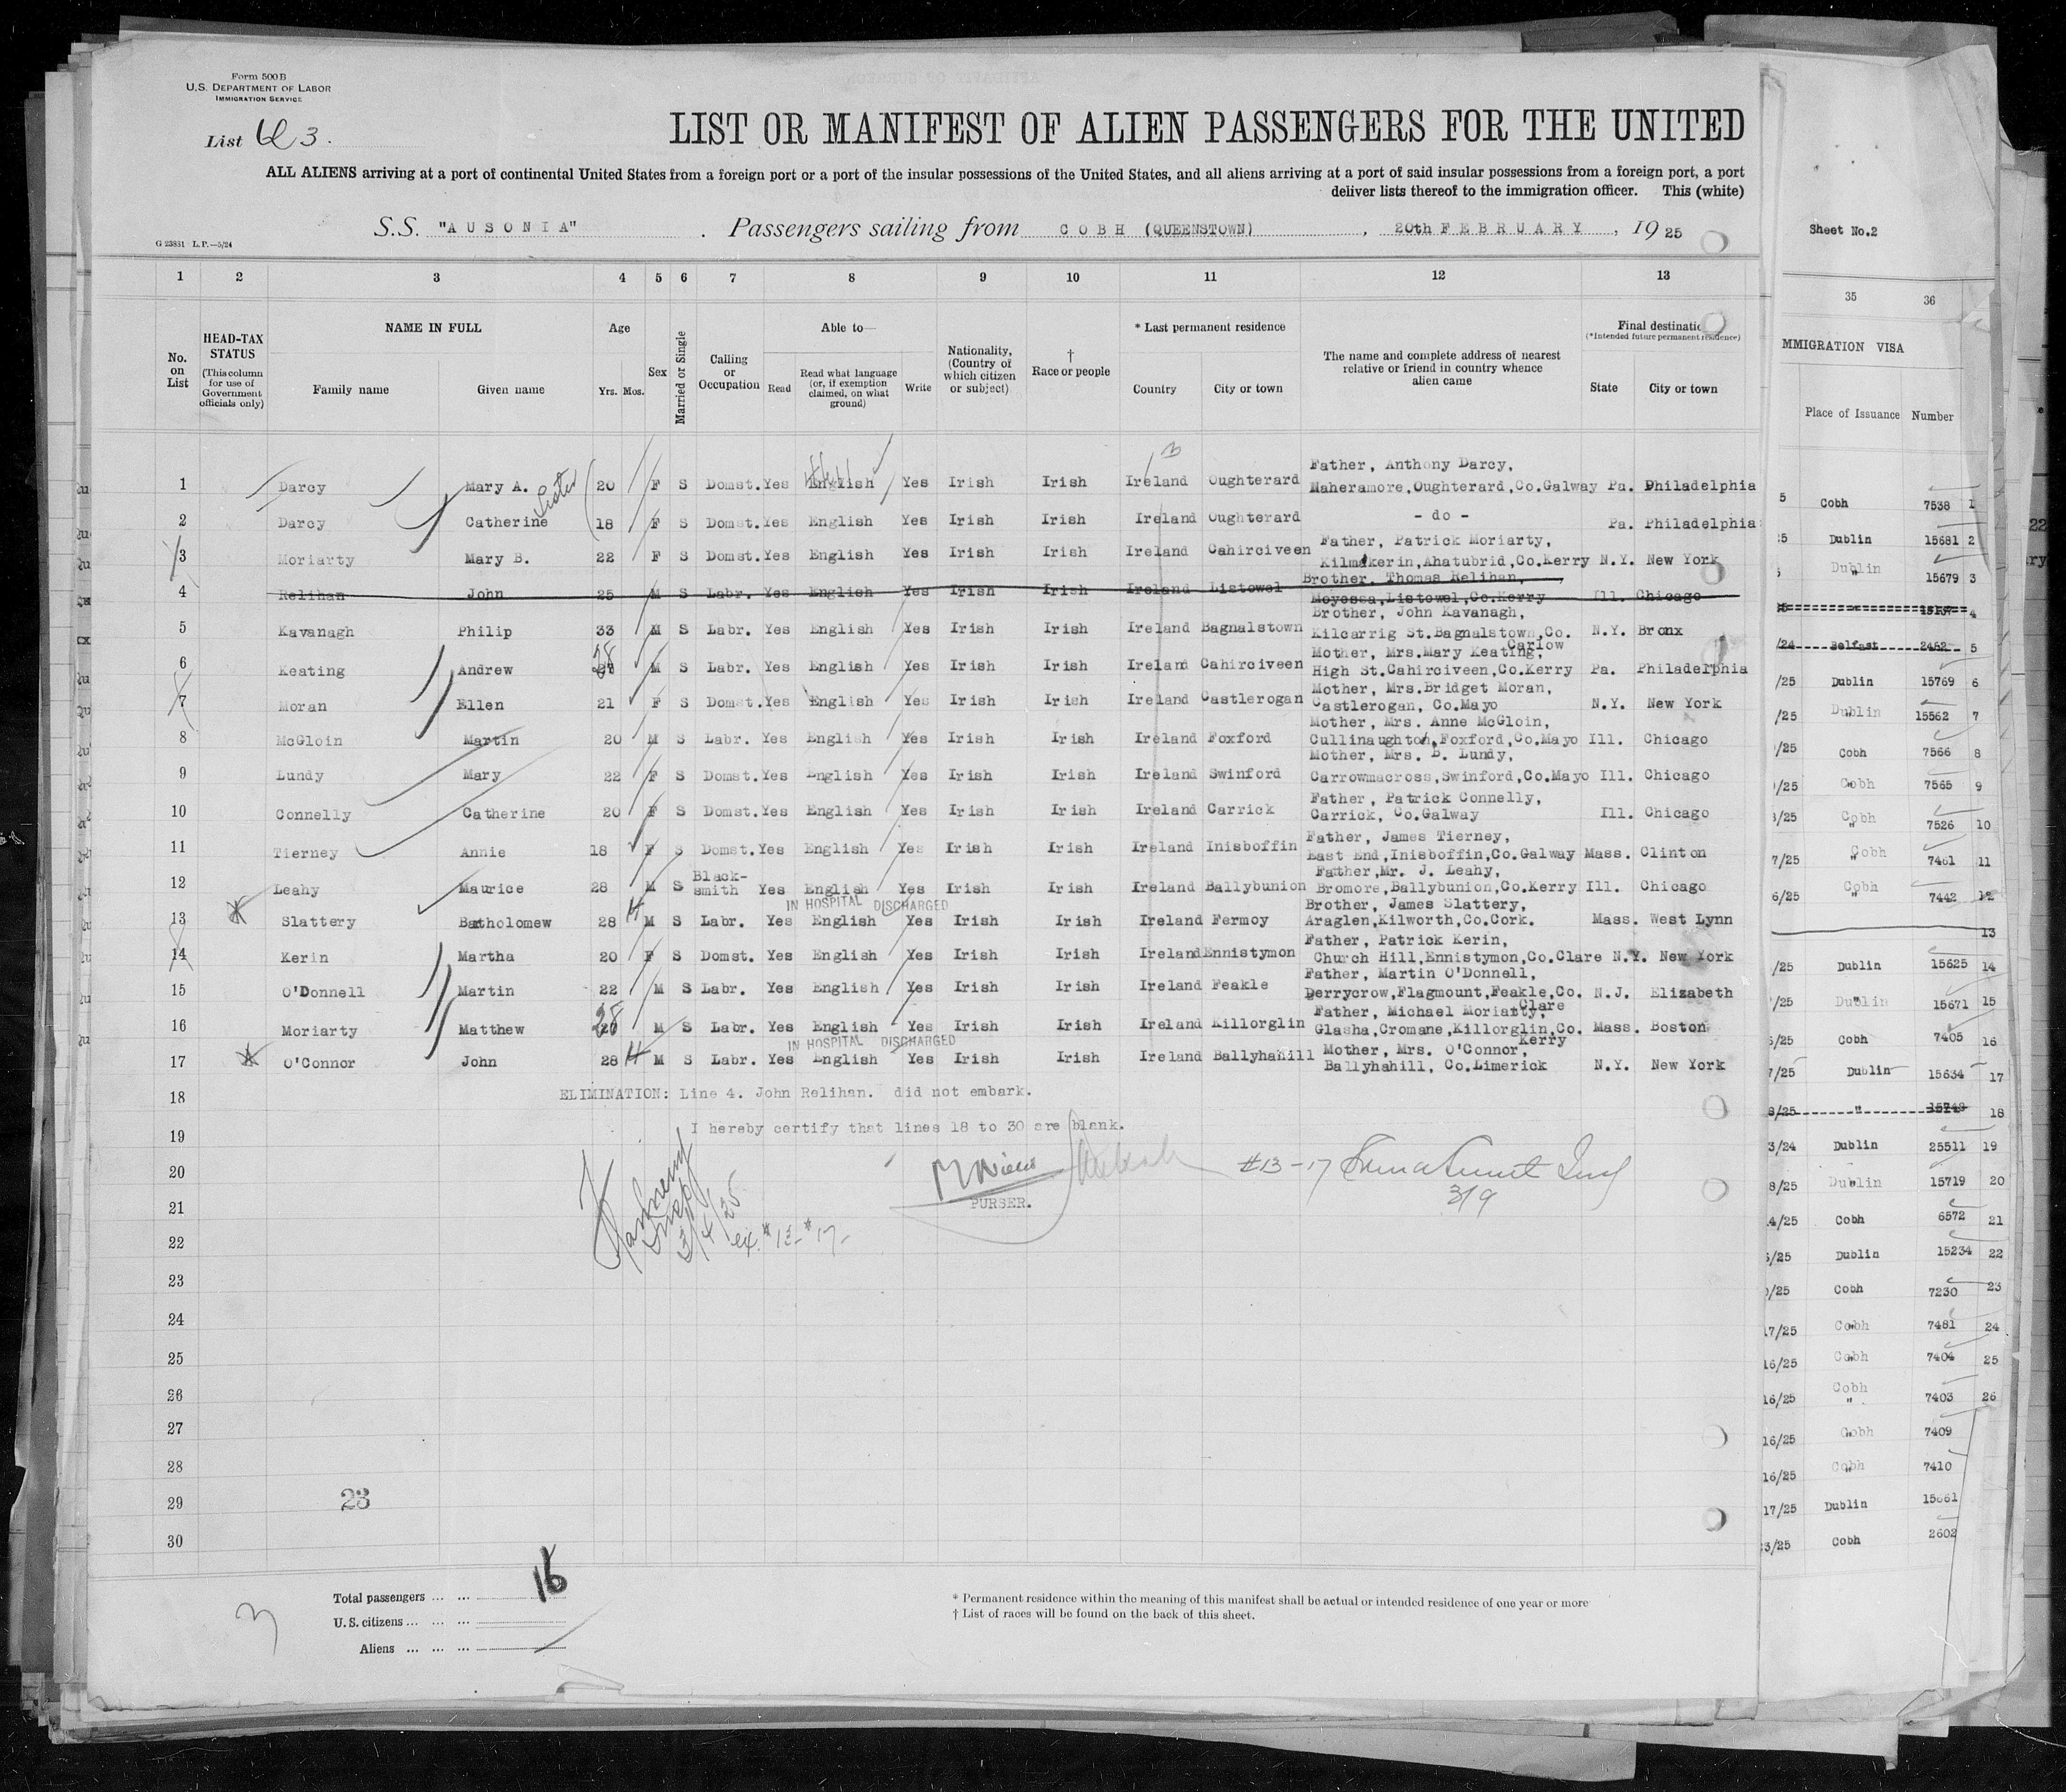 Form 500B
U.S. DEPARTMENT OF LABOR
IMMIGRATION SERVICE
List 3.
LIST OR MANIFEST OF ALIEN PASSENGERS FOR THE UNITED
ALL ALIENS arriving at a port of continental United States from a foreign port or a port of the insular possessions of the United States, and all aliens arriving at a port of said insular possessions from a foreign port, a port
deliver lists thereof to the immigration officer. This (white)
S.S. "AUSONIA". Passengers sailing from COBH (QUEENSTOWN), 20th FEBRUARY, 1925
G 23851 L.P.—5/24
1 2 3 4 5 6 7 8 9 10 11 12 13
No. on List
HEAD-TAX STATUS (This column for use of Government officials only)
NAME IN FULL
Family name Given name
Age
Yrs. Mos.
Sex
Married or Single
Calling or Occupation
Able to—
Read
Read what language (or, if exemption claimed, on what ground)
Write
Nationality, (Country of which citizen or subject)
† Race or people
* Last permanent residence
Country City or town
The name and complete address of nearest relative or friend in country whence alien came
Final destinatio
(*Intended future permanent residence)
State City or town
Father, Anthony Darcy,
1 Darcy Mary A. Sister 20 F S Domst. Yes English Yes Irish Irish Ireland Oughterard Maheramore,Oughterard,Co.Galway Pa. Philadelphia
2 Darcy Catherine 18 F S Domst. Yes English Yes Irish Irish Ireland Oughterard - do - Pa. Philadelphia
Father, Patrick Moriarty,
3 Moriarty Mary B. 22 F S Domst. Yes English Yes Irish Irish Ireland Cahirciveen Kilmakerin,Ahatubrid,Co.Kerry N.Y. New York
Brother. Thomas Relihan,
4 Relihan John 25 M S Labr. Yes English Yes Irish Irish Ireland Listowel Moyessa,Listowel,Co.Kerry Ill. Chicago
Brother, John Kavanagh,
5 Kavanagh Philip 33 M S Labr. Yes English Yes Irish Irish Ireland Bagnalstown Kilcarrig St.Bagnalstown,Co. Carlow N.Y. Bronx
Mother, Mrs.Mary Keating,
6 Keating Andrew 28 M S Labr. Yes English Yes Irish Irish Ireland Cahirciveen High St.Cahirciveen,Co.Kerry Pa. Philadelphia
Mother, Mrs.Bridget Moran,
7 Moran Ellen 21 F S Domst. Yes English Yes Irish Irish Ireland Castlerogan Castlerogan, Co.Mayo N.Y. New York
Mother, Mrs. Anne McGloin,
8 McGloin Martin 20 M S Labr. Yes English Yes Irish Irish Ireland Foxford Cullinaughton,Foxford,Co.Mayo Ill. Chicago
Mother, Mrs. B. Lundy,
9 Lundy Mary 22 F S Domst. Yes English Yes Irish Irish Ireland Swinford Carrowmacross,Swinford,Co.Mayo Ill. Chicago
Father, Patrick Connelly,
10 Connelly Catherine 20 F S Domst. Yes English Yes Irish Irish Ireland Carrick Carrick, Co.Galway Ill. Chicago
Father, James Tierney,
11 Tierney Annie 18 F S Domst. Yes English Yes Irish Irish Ireland Inisboffin East End,Inisboffin,Co.Galway Mass. Clinton
Father,Mr. J. Leahy,
12 Leahy Maurice 28 M S Black-smith Yes English Yes Irish Irish Ireland Ballybunion Bromore,Ballybunion,Co.Kerry Ill. Chicago
IN HOSPITAL DISCHARGED
Brother, James Slattery,
13 Slattery Bartholomew 28 M S Labr. Yes English Yes Irish Irish Ireland Fermoy Araglen,Kilworth,Co.Cork. Mass. West Lynn
Father, Patrick Kerin,
14 Kerin Martha 20 F S Domst. Yes English Yes Irish Irish Ireland Ennistymon Church Hill,Ennistymon,Co.Clare N.Y. New York
Father, Martin O'Donnell,
15 O'Donnell Martin 22 M S Labr. Yes English Yes Irish Irish Ireland Feakle Derrycrow,Flagmount,Feakle,Co. Clare N.J. Elizabeth
Father, Michael Moriarty,
16 Moriarty Matthew 28 M S Labr. Yes English Yes Irish Irish Ireland Killorglin Glasha,Cromane,Killorglin,Co. Kerry Mass. Boston
IN HOSPITAL DISCHARGED
Mother, Mrs. O'Connor,
17 O'Connor John 28 M S Labr. Yes English Yes Irish Irish Ireland Ballyhahill Ballyhahill, Co.Limerick N.Y. New York
18 ELIMINATION: Line 4. John Relihan. did not embark.
19 I hereby certify that lines 18 to 30 are blank.
20 #13-17
3/9
21 PURSER.
3/4/25
22 ex. #13-#17-
23
24
25
26
27
28
29
23
30
Total passengers ... ... 16
U.S. citizens ... ... ...
Aliens ... ... ...
3
* Permanent residence within the meaning of this manifest shall be actual or intended residence of one year or more
† List of races will be found on the back of this sheet.
Sheet No.2
35 36
MMIGRATION VISA
Place of Issuance Number
5 Cobh 7538 1
25 Dublin 15681 2
Dublin 15679 3
4
/24 Belfast 2462 5
/25 Dublin 15769 6
/25 Dublin 15562 7
/25 Cobh 7566 8
/25 Cobh 7565 9
/25 Cobh 7526 10
7/25 Cobh 7461 11
6/25 Cobh 7442 12
13
/25 Dublin 15625 14
/25 Dublin 15671 15
/25 Cobh 7405 16
7/25 Dublin 15634 17
8/25 " 15748 18
3/24 Dublin 25511 19
8/25 Dublin 15719 20
4/25 Cobh 6572 21
/25 Dublin 15234 22
/25 Cobh 7230 23
17/25 Cobh 7481 24
16/25 Cobh 7404 25
16/25 Cobh 7403 26
16/25 Cobh 7409
16/25 Cobh 7410
17/25 Dublin 15661
3/25 Cobh 2602
22